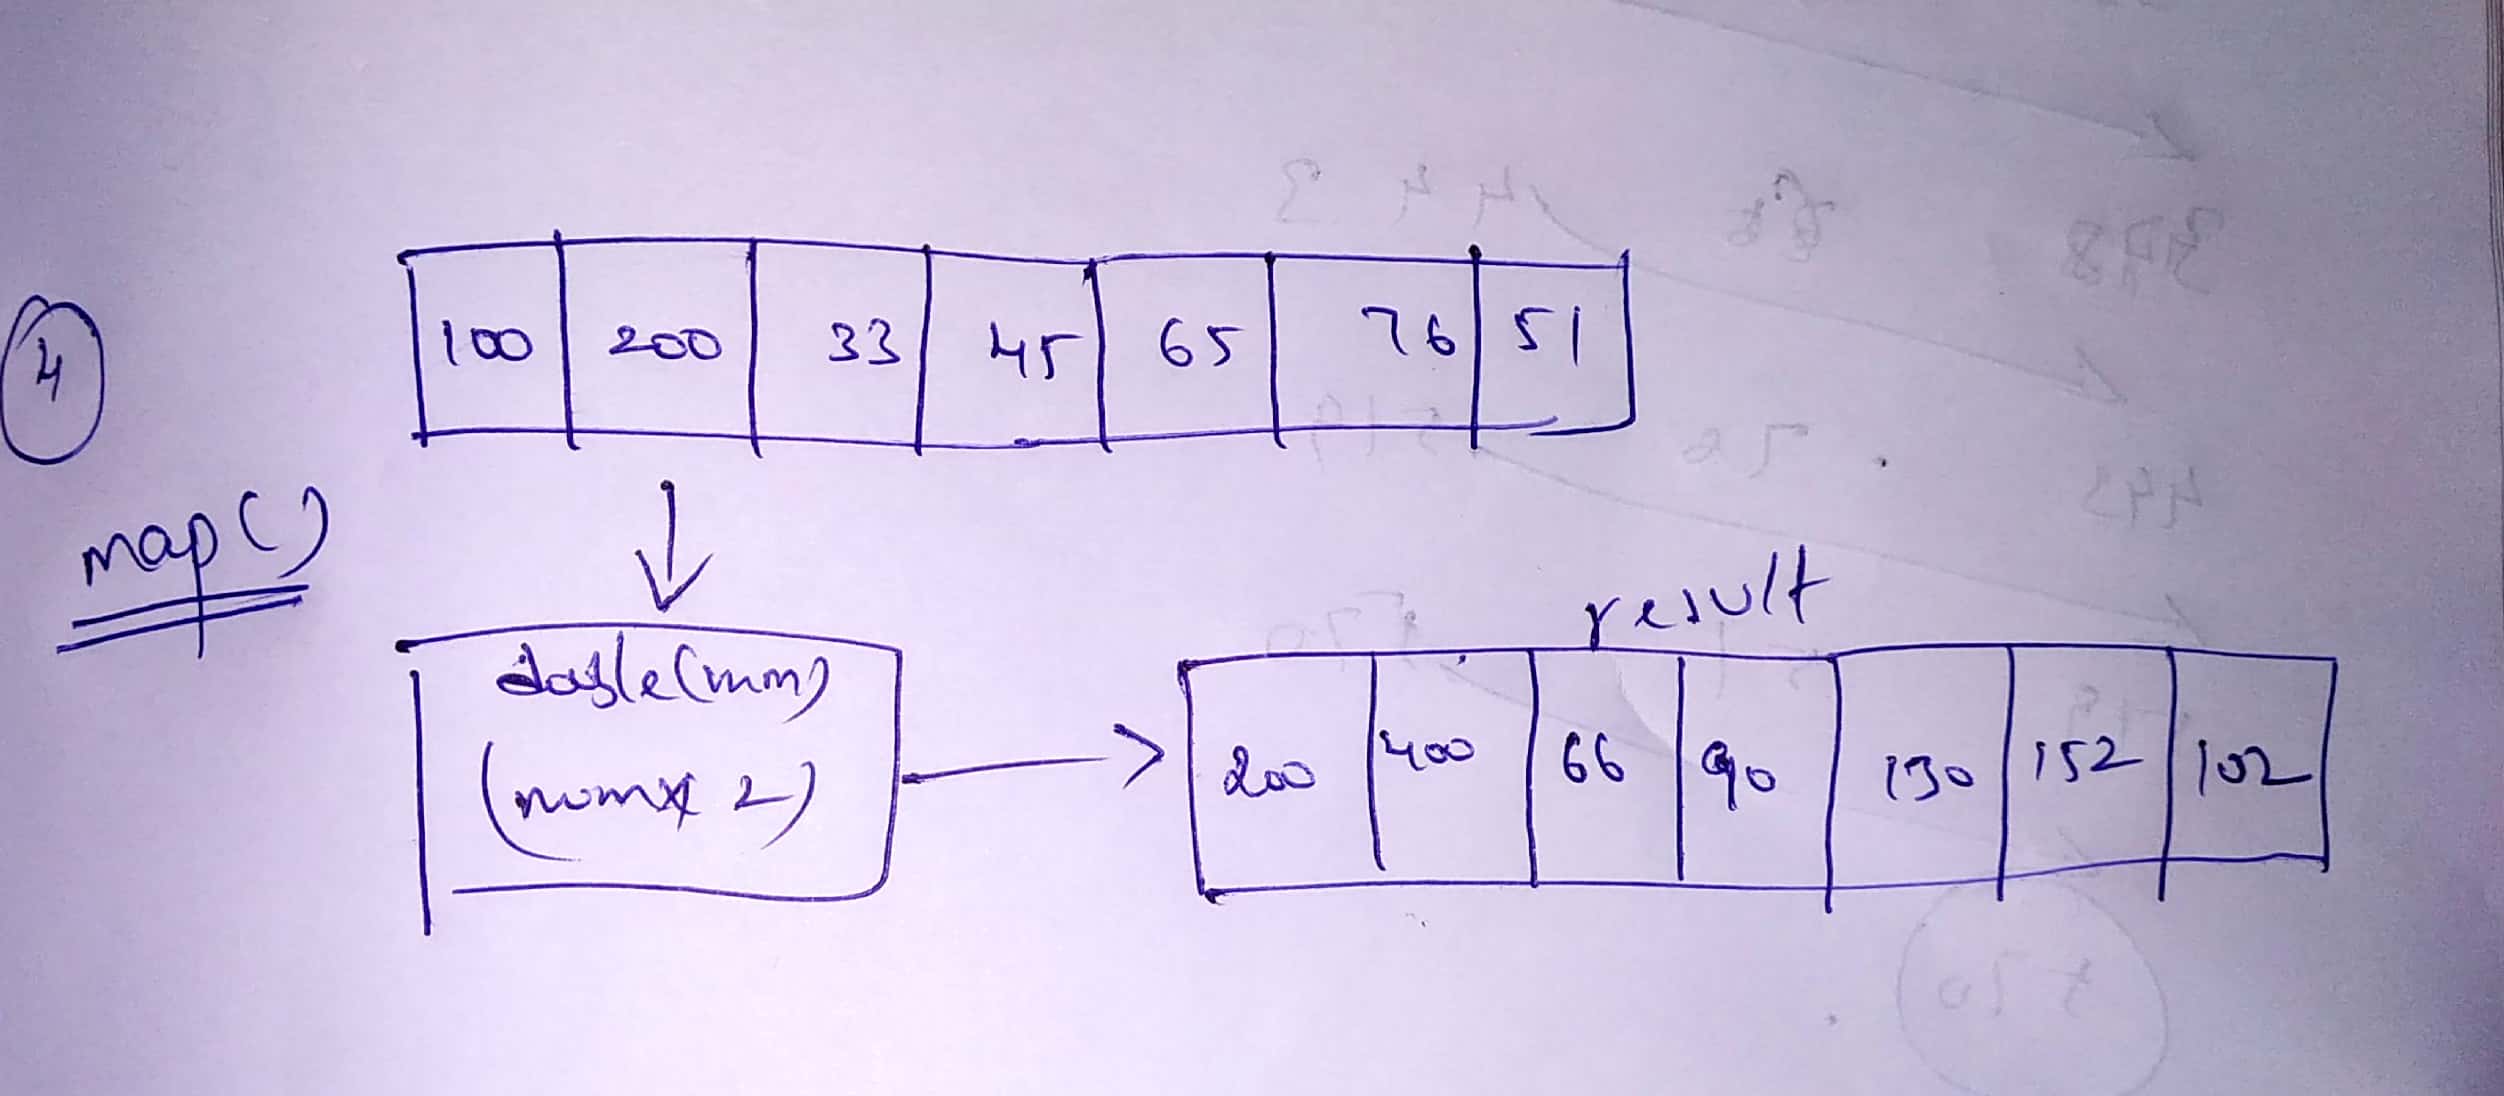 4
100 200 33 45 65 76 51
map()
double(num)
(num * 2)
result
200 400 66 90 130 152 102